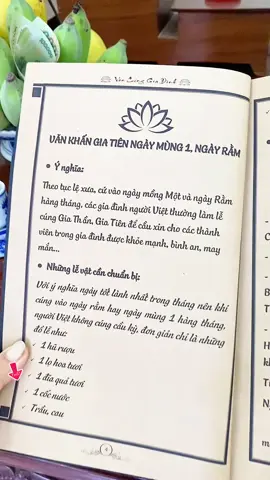 Văn Cúng Gia Đình
VĂN KHẤN GIA TIÊN NGÀY MÙNG 1, NGÀY RẰM
• Ý nghĩa:
Theo tục lệ xưa, cứ vào ngày mồng Một và ngày Rằm
hàng tháng, các gia đình người Việt thường làm lễ
cúng Gia Thần, Gia Tiên để cầu xin cho các thành
viên trong gia đình được khỏe mạnh, bình an, may
mắn...
• Những lễ vật cần chuẩn bị:
Với ý nghĩa ngày tốt lành nhất trong tháng nên khi
cúng vào ngày rằm hay ngày mùng 1 hàng tháng,
người Việt không cúng cầu kỳ, đơn giản chỉ là những
đồ lễ như:
✓ 1 hũ rượu
✓ 1 lọ hoa tươi
✓ 1 đĩa quả tươi
✓ 1 cốc nước
✓ Trầu, cau
4